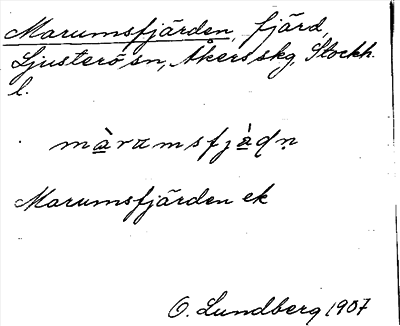 Marumsfjärden, fjärd,
Ljusterö sn, Åkers skg, Stockh.
l.
màrαmsfjàḍṇ
Marumsfjärden ek
O. Lundberg 1907